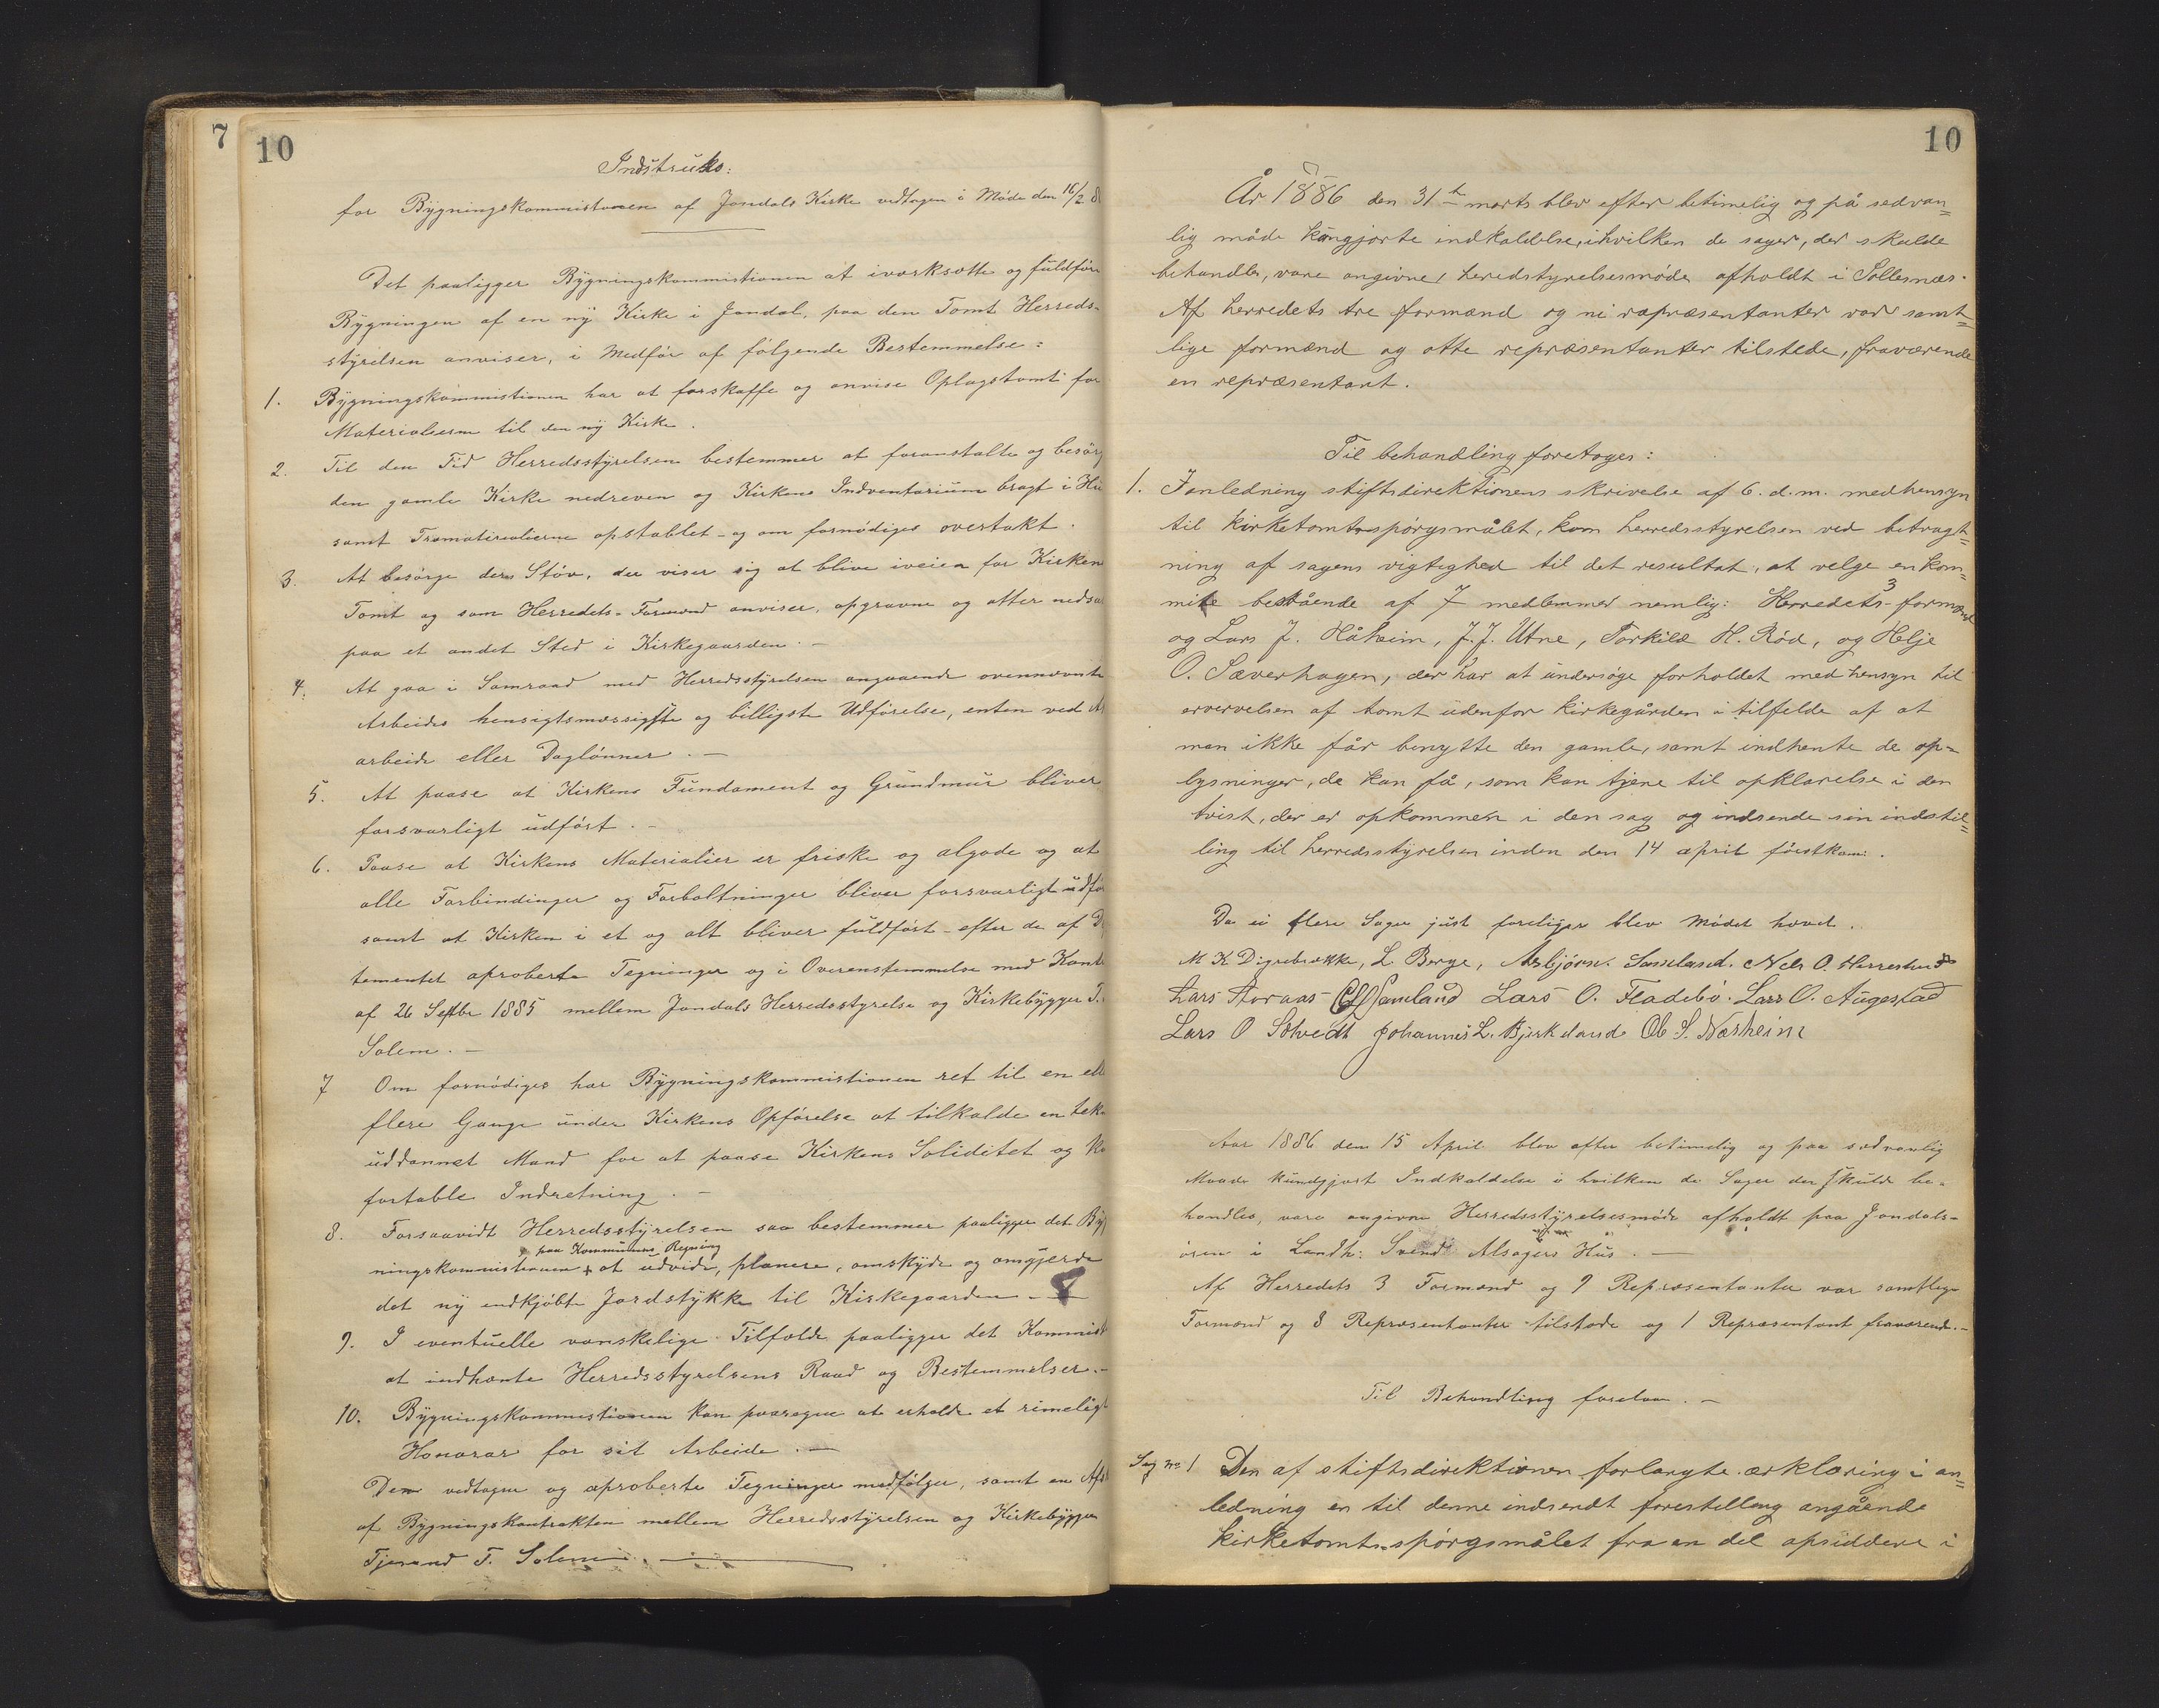 7
10
Indstruks:
for Bygningskommistonen af Jondals Kirke vedtagen i Møde den 16/2 8
Det paaligger Bygningskommistionen at iværksætte og fuldføre
Bygningen af en ny Kirke i Jondal, paa den Tomt Herreds-
styrelsen anviser, i Medfør af følgende Bestemmelse:
1. Bygningskommistionen har at forskaffe og anvise Oplagstomt for
Materialierne til den ny Kirke.
2. Til den Tid Herredsstyrelsen bestemmer at foranstalte og besørg
den gamle Kirke nedreven og Kirkens Indventarium bragt i Hu
samt Træmaterialierne opstablet - og om fornødiges overtakt.
3. At besørge dens Støv, der viser sig at blive iveien for Kirken
Tomt og som Herredets-Formænd anviser, opgravne og atter nedsa
paa et andet Sted i Kirkegaarden. -
4. At gaa i Samraad med Herredsstyrelsen angaaende ovennævnte
Arbeides hensigtsmæssigste og billigste Udførelse, enten ved A
arbeide eller Daglønner. -
5. At paase at Kirkens Fundament og Grundmur bliver
forsvarligt udført. -
6. Paase at Kirkens Materialier er friske og algode og at
alle Forbindinger og Forboltninger bliver forsvarligt udfø
samt at Kirken i et og alt bliver fuldført - efter de af D
tementet aproberte Tegninger og i Overenstemmelse med Kont
af 26 Septbr 1885 mellem Jondals Herredsstyrelse og Kirkebygger T.
Solem. -
7 Om fornødiges har Bygningskommistionen ret til en ell
flere Gange under Kirkens Opførelse at tilkalde en tek
uddannet Mand for at paase Kirkens Soliditet og Ko
fortable Indretning. -
8. Forsaavidt Herredsstyrelsen saa bestemmer paaligger det Byg
paa Kommunens Regning
ningskommistionen + at udvide, planere, omskyde og omgjerde
det ny indkjøbte Jordstykke til Kirkegaarden. -
9. I eventuelle vanskelige Tilfælde paaligger det Kommist
at indhente Herredsstyrelsens Raad og Bestemmelser. -
10. Bygningskommistionen kan paaregne at erholde et rimeligt
Honorar for sit Arbeide. -
Den vedtagne og aproberte Tegninger medfølger, samt en Afs
af Bygningskontrakten mellem Herredsstyrelsen og Kirkebygger
Tjerand T. Solem. -
10
År 1886 den 31te marts blev efter betimelig og på sedvan=
lig måde kungjorte indkaldelse, ihvilken de sager, der skulde
behandles, vare angivne, heredstyrelsesmøde afholdt i Sollesnæs.
Af herredets tre formænd og ni repræsentanter var samt=
lige formænd og otte repræsentanter tilstede, fraværende
en repræsentant.
Til behandling foretoges:
1. I anledning stiftsdirektionens skrivelse af 6. d. m. medhensyn
til kirketomtspørgsmålet, kom herredsstyrelsen ved betragt=
ning af sagens vigtighed til det resultat, at velge en kom=
mite bestående af 7 medlemmer nemlig: Herredets 3 formænd
og Lars J. Håheim, J. J. Utne, Torkild H. Rød, og Helje
O. Sæverhagen, der har at undersøge forholdet med hensyn til
ervervelsen af tomt udenfor kirkegården i tilfelde af at
man ikke får benytte den gamle, samt indhente de op=
lysninger, de kan få, som kan tjene til opklarelse i den
tvist, der er opkommen i den sag og indsende sin indstil=
ling til herredsstyrelsen inden den 14 april førstkom:.
Da ei flere Sager just foreligger blev Mødet hævet.
M K Digrebrække, L. Berge, Asbjørn. Samland. Nels O. Herrestved
Lars Aoraas O Samland Lars O. Fladebø. Lars O. Augestad
Lars O Solvedt Johannes L. Bjerkeland Ole S. Næsheim
Aar 1886 den 15 April blev efter betimelig og paa sædvanlig
Maade kundgjort Indkaldelse i hvilken de Sager der skulde be-
handles, vare angivne Herredsstyrelsesmøde afholdt paa Jondals-
øren i Landh: Svend Alsagers Hus. -
Af Herredets 3 Formænd og 9 Repræsentanter var samtlige
Formænd og 8 Repræsentanter tilstede og 1 Repræsentant fraværende. -
Til Behandling forelaa. -
Sag No 1 Den af stiftsdirektionen forlangte erklæring i an=
ledning en til denne indsendt forestilling angående
kirketomts-spørgsmålet fra en del opsiddere i